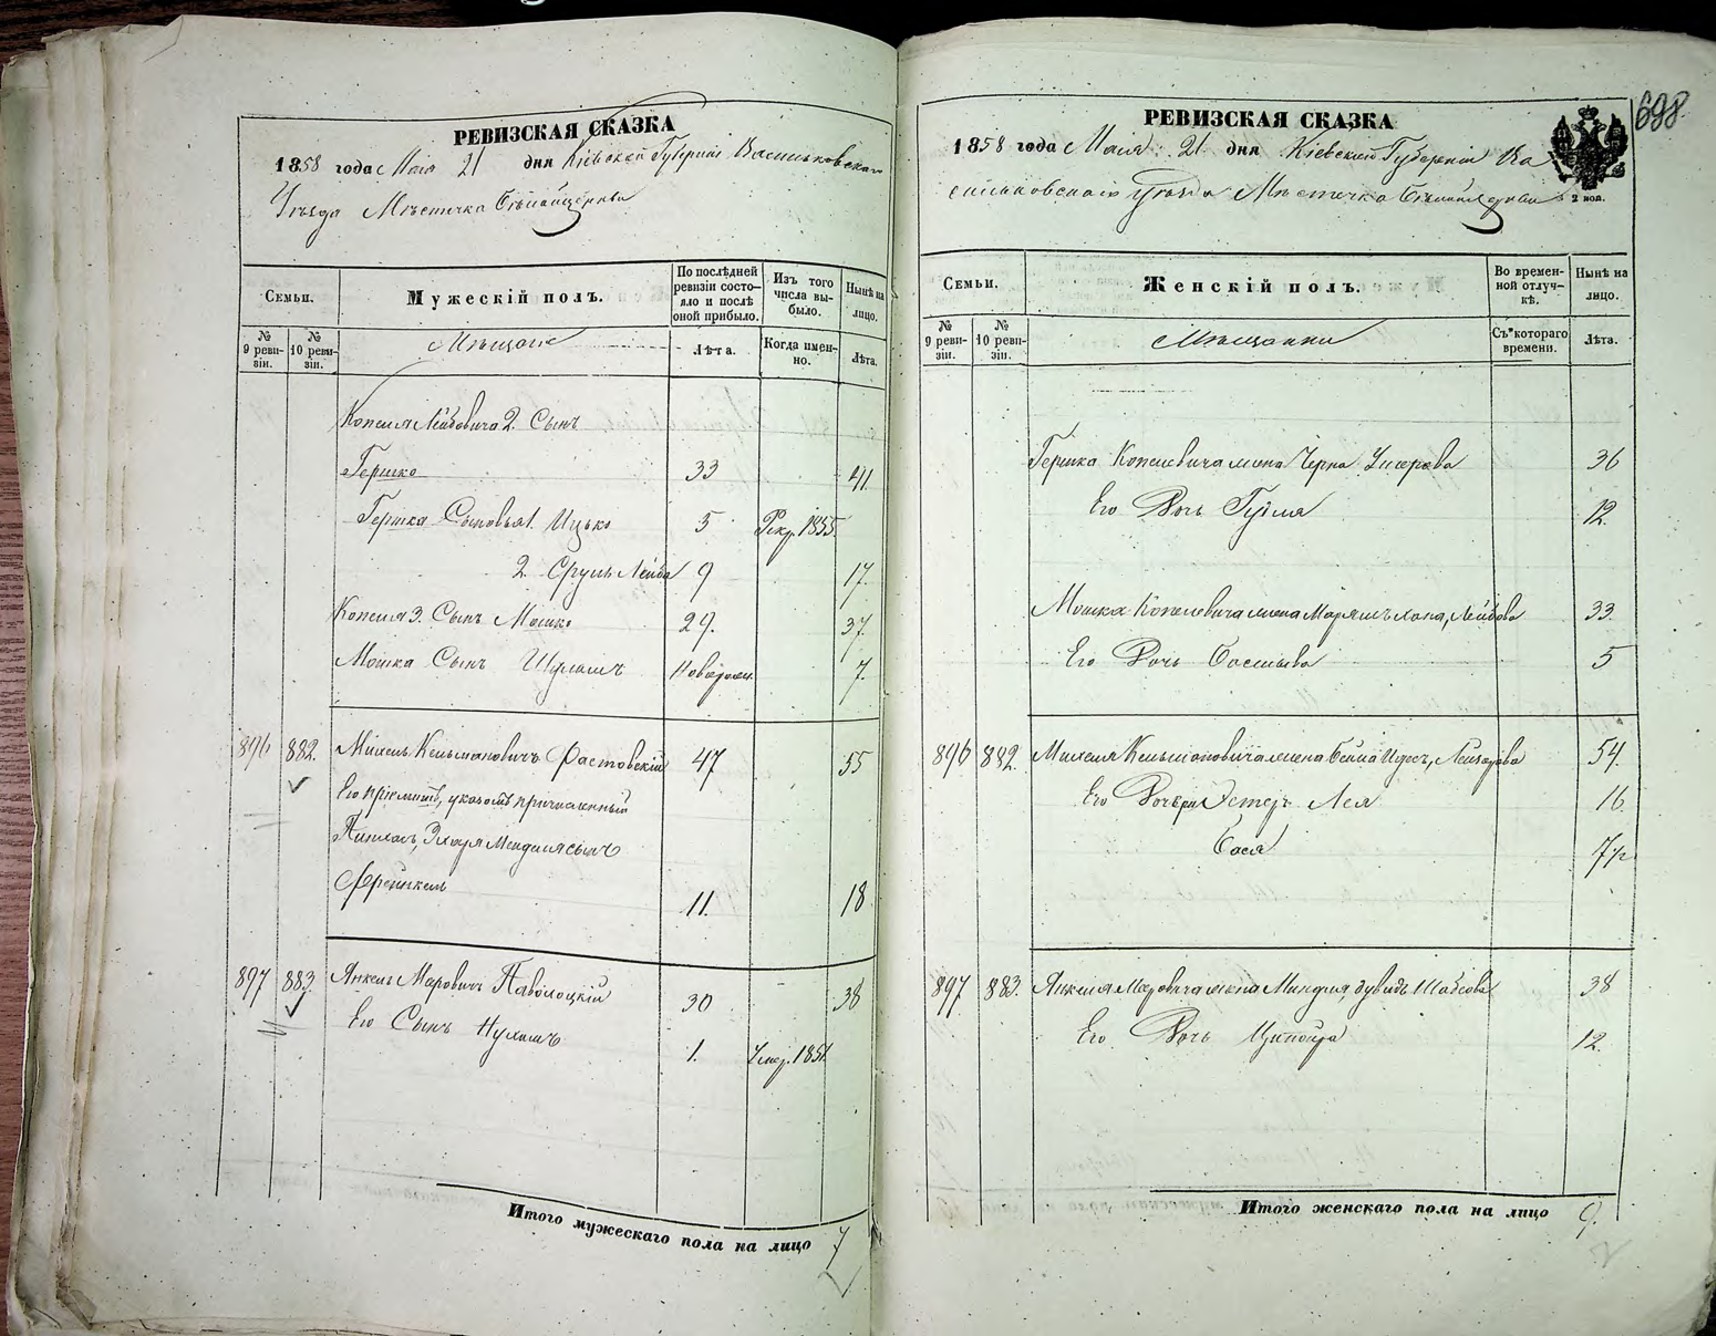 РЕВИЗСКАЯ СКАЗКА
1858 года Мая 21 дня Кіевской Губерніи Васильковскаго
Уѣзда Мѣстечка Бѣлойцеркви
Семьи.
Мужескій полъ.
По послѣдней ревизіи состояло и послѣ оной прибыло.
Изъ того числа выбыло.
Нынѣ на лицо.
№ 9 ревизіи.
№ 10 ревизіи.
Мѣщане
Лѣта.
Когда именно.
Лѣта.
Копеля Лейбовича 2. Сынъ
Гершко 33 41.
Гершка Сыновья 1. Ицько 5 Рекр. 1855.
2. Сруль Лейба 9 17.
Копеля 3. Сынъ Мошко 29. 37.
Мошка Сынъ Шулимъ Новорожд. 7.
896 882. Михель Кельмановичъ Фастовскій 47 55
Его пріемышъ, указомъ причисленный
Менделя сынъ
Френкель 11. 18
897 883. Янкель Меровичъ Паволоцкій 30 38
Его Сынъ Нухимъ 1. Умер. 1851.
Итого мужескаго пола на лицо 7
698.
РЕВИЗСКАЯ СКАЗКА
1858 года Мая 21 дня Кіевской Губерніи Ва
сильковскаго Уѣзда Мѣстечка Бѣлойцеркви
2 коп.
Семьи.
Женскій полъ.
Во временной отлучкѣ.
Нынѣ на лицо.
№ 9 ревизіи.
№ 10 ревизіи.
Мѣщанки
Съ котораго времени.
Лѣта.
Гершка Копелевича жена Черна Умерова 36
Его Дочь Гуйля 12.
Мошка Копелевича жена Маріямъ хана, Лейбова 33.
Его Дочь Басшева 5
896 882. Михеля Кельмановича жена Бейла Лейзорова 54.
Его Дочери Эстеръ Лея 16.
Бася 7 1/2
897 883. Янкеля Меровича жена Миндля, Шабсова 38
Его Дочь Ципойра 12.
Итого женскаго пола на лицо 9.